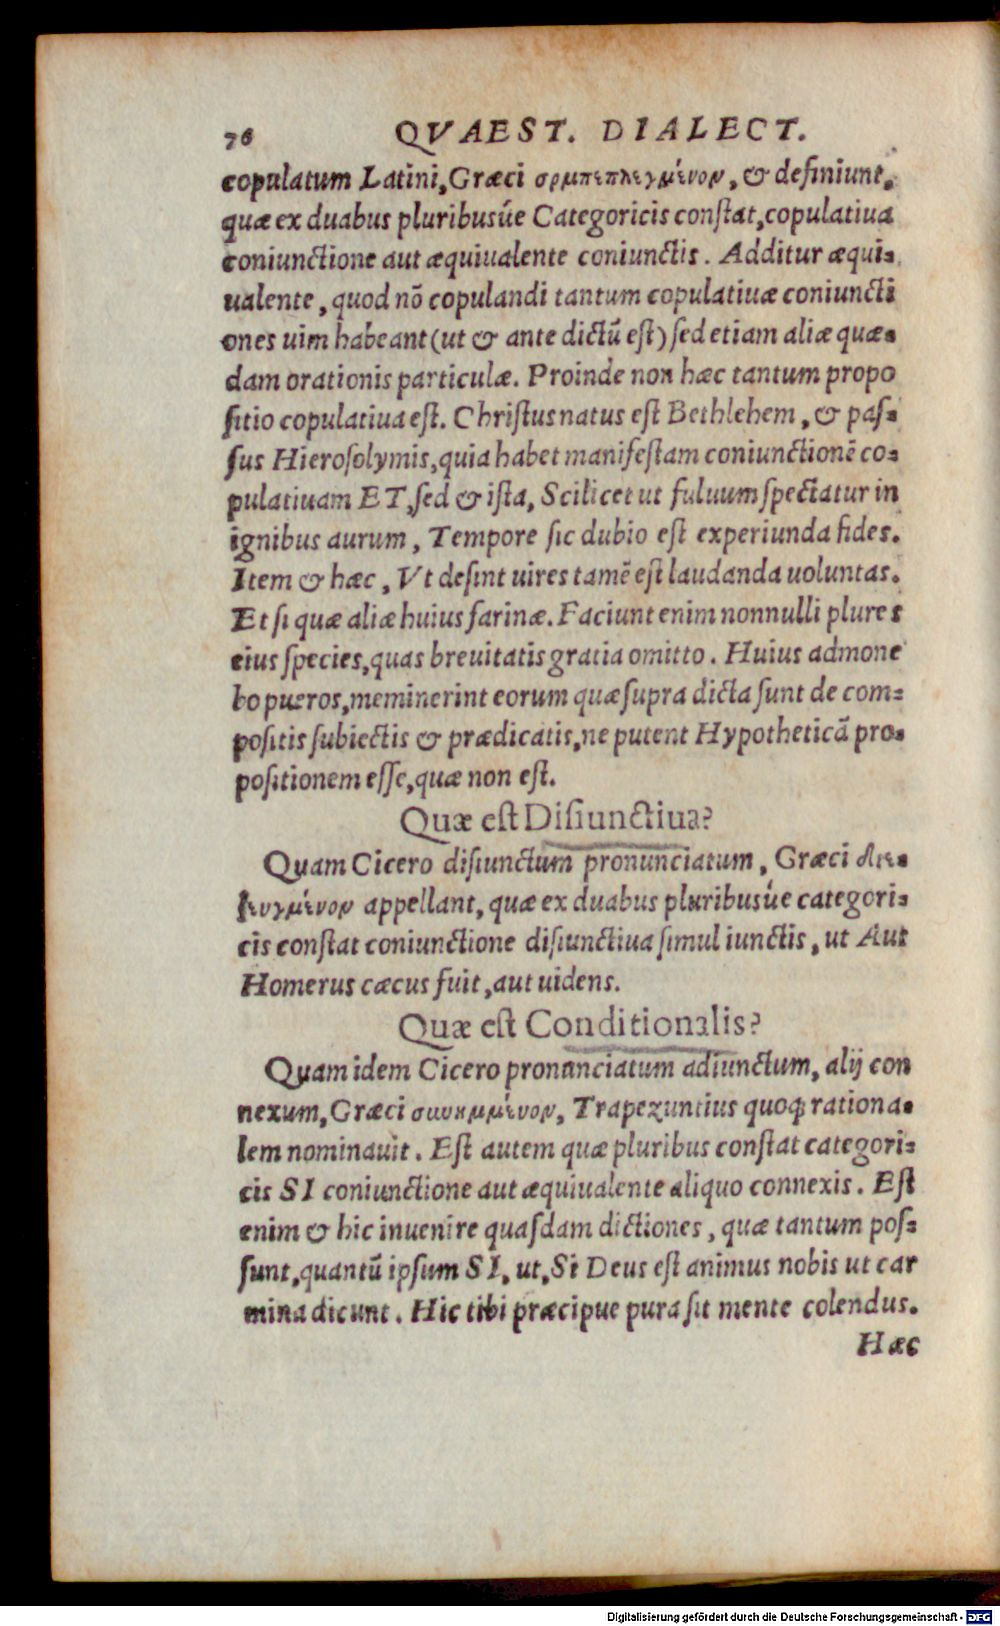 76 QVAEST. DIALECT.
copulatum Latini, Græci συμπεπλεγμένον, & definiunt,
quæ ex duabus pluribusúe Categoricis conſtat, copulatiua
coniunctione aut æquiualente coniunctis. Additur æqui⸗
ualente, quod nõ copulandi tantum copulatiuæ coniuncti
ones uim habeant (ut & ante dictũ eſt) ſed etiam aliæ quæ⸗
dam orationis particulæ. Proinde non hæc tantum propo
ſitio copulatiua eſt. Chriſtus natus eſt Bethlehem, & paſ⸗
ſus Hieroſolymis, quia habet manifeſtam coniunctionẽ co⸗
pulatiuam ET, ſed & iſta, Scilicet ut fuluum ſpectatur in
ignibus aurum, Tempore ſic dubio eſt experiunda fides.
Item & hæc, Vt deſint uires tamẽ eſt laudanda uoluntas.
Et ſi quæ aliæ huius farinæ. Faciunt enim nonnulli plures
eius ſpecies, quas breuitatis gratia omitto. Huius admone
bo pueros, meminerint eorum quæ ſupra dicta ſunt de com⸗
poſitis ſubiectis & prædicatis, ne putent Hypotheticã pro⸗
poſitionem eſſe, quæ non eſt.
Quæ eſt Diſiunctiua?
Quam Cicero diſiunctum pronunciatum, Græci διε⸗
ζευγμένον appellant, quæ ex duabus pluribusúe categori⸗
cis conſtat coniunctione diſiunctiua ſimul iunctis, ut Aut
Homerus cæcus fuit, aut uidens.
Quæ eſt Conditionalis?
Quam idem Cicero pronunciatum adiunctum, alij con
nexum, Græci συνημμένον, Trapezuntius quoqꝫ rationa⸗
lem nominauit. Eſt autem quæ pluribus conſtat categori⸗
cis SI coniunctione aut æquiualente aliquo connexis. Eſt
enim & hic inuenire quaſdam dictiones, quæ tantum poſ⸗
ſunt, quantũ ipſum SI, ut, Si Deus eſt animus nobis ut car
mina dicunt. Hic tibi præcipue pura ſit mente colendus.
Hæc
Digitalisierung gefördert durch die Deutsche Forschungsgemeinschaft - DFG